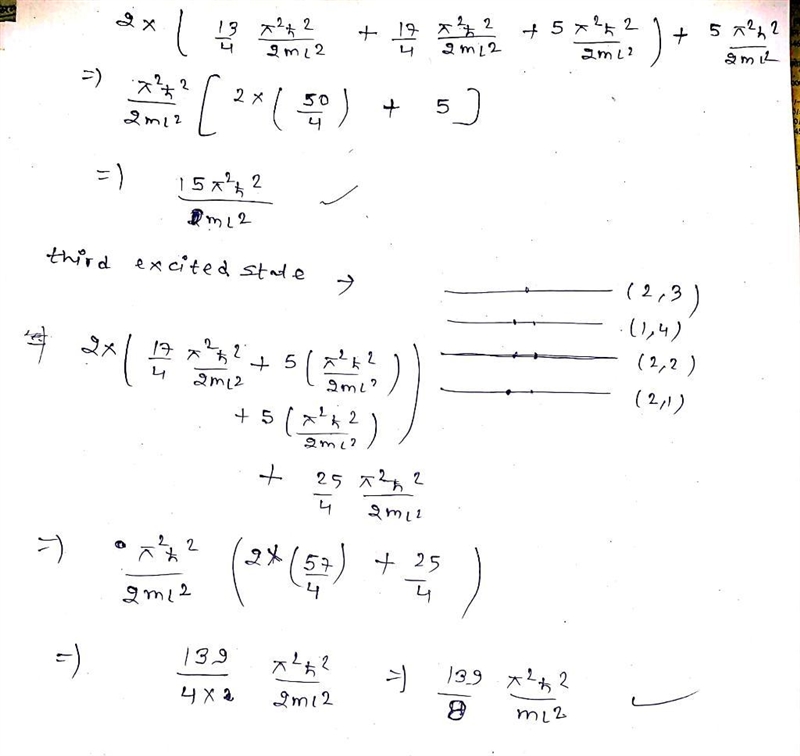 2 × ( 13/4 π²ℏ²/2mL² + 17/4 π²ℏ²/2mL² + 5 π²ℏ²/2mL² ) + 5 π²ℏ²/2mL²
=) π²ℏ²/2mL² [ 2 × ( 50/4 ) + 5 ]
=) 15π²ℏ²/mL² ✓
third excited state →
(2,3)
(1,4)
(2,2)
(2,1)
=) 2× ( 17/4 π²ℏ²/2mL² + 5 ( π²ℏ²/2mL² )
+ 5 ( π²ℏ²/2mL² ) )
+ 25/4 π²ℏ²/2mL²
=) π²ℏ²/2mL² ( 2× ( 57/4 ) + 25/4 )
=) 139/4×2 π²ℏ²/2mL² =) 139/8 π²ℏ²/mL² ✓